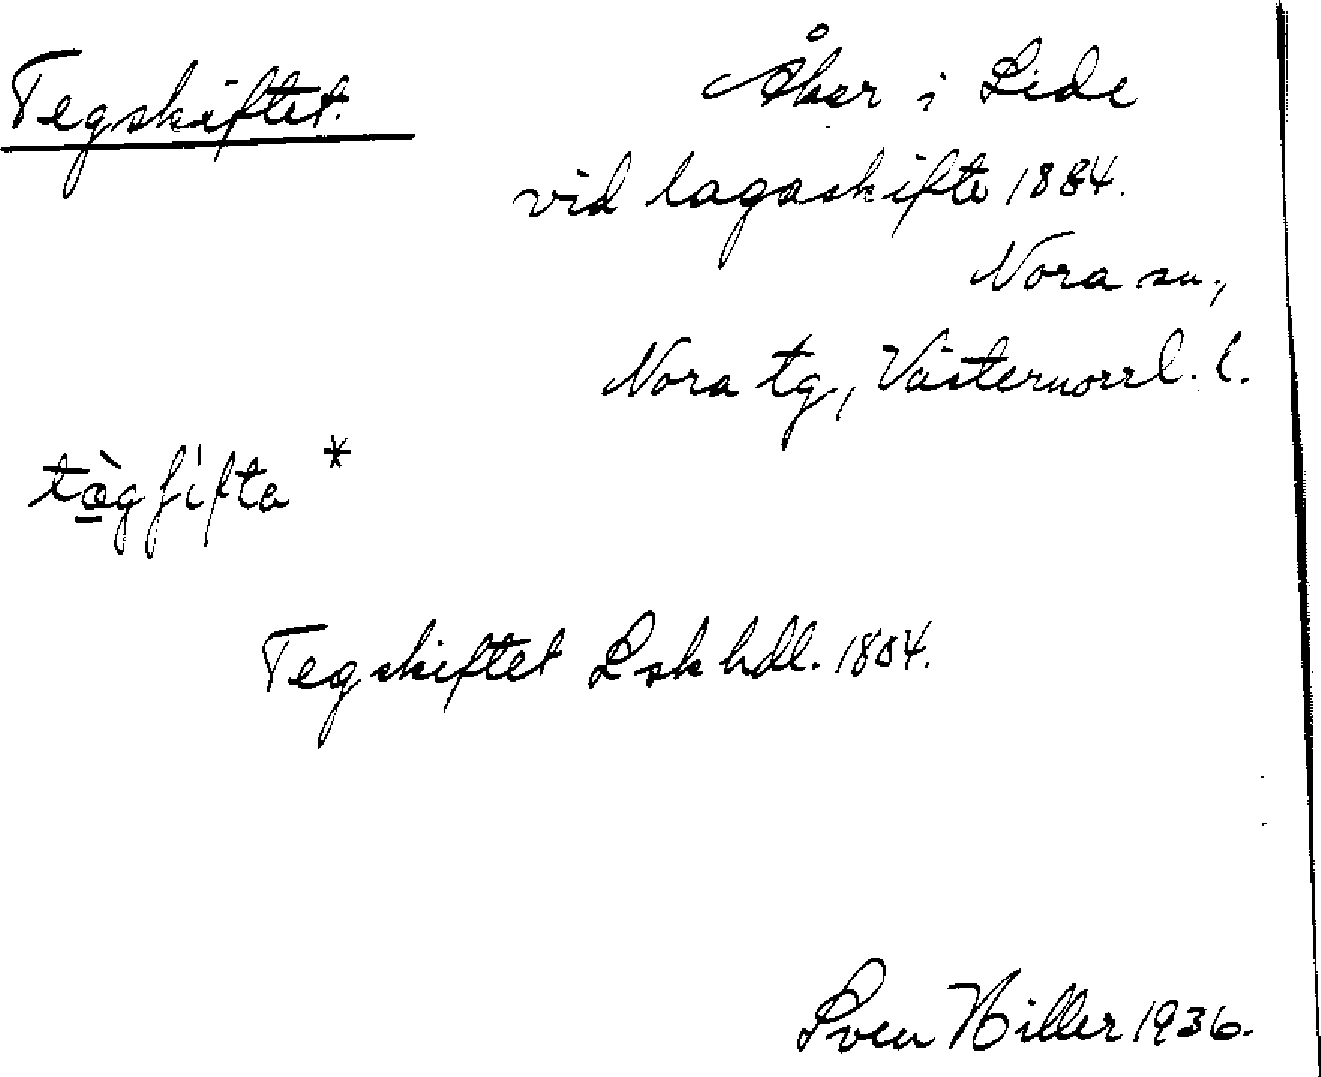 Tegskiftet.
Åker i Lide
vid lagaskifte 1884.
Nora sn,
Nora tg, Västernorrl. l.
tæ̀gʃifta *
Tegskiftet Lskhdl. 1884.
Sven Hiller 1936.